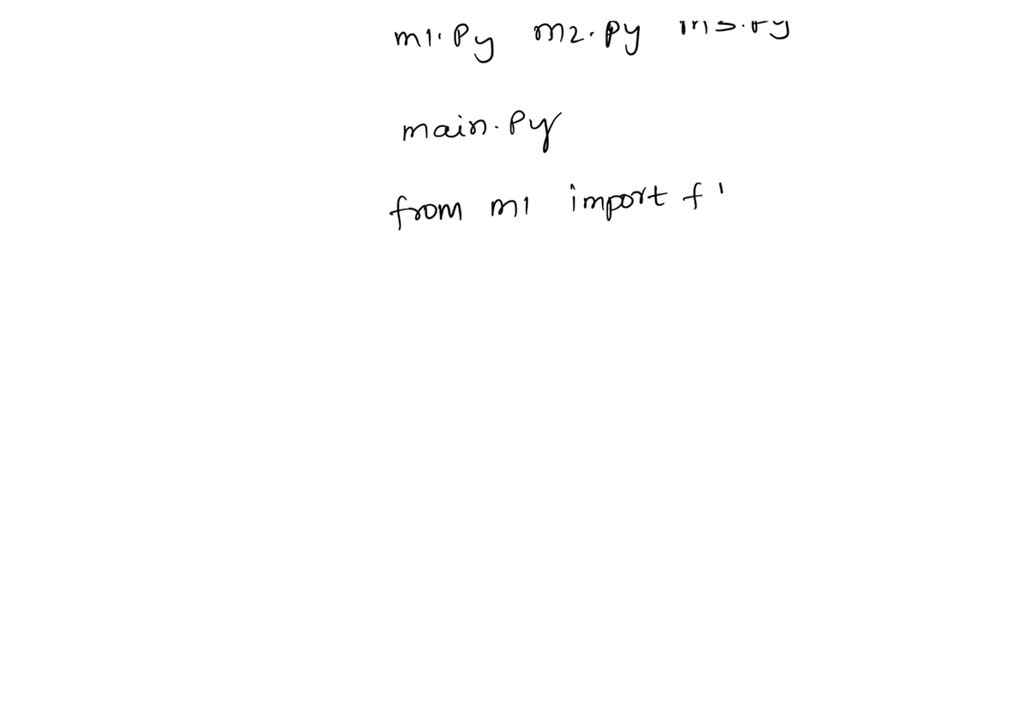 m1.py m2.py
main.py
from m1 import f